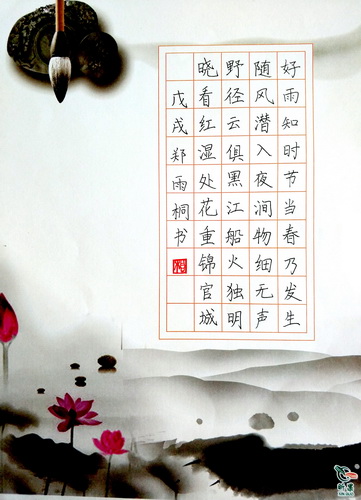 好雨知时节当春乃发生
随风潜入夜润物细无声
野径云俱黑江船火独明
晓看红湿处花重锦官城
戊戌郑雨桐书